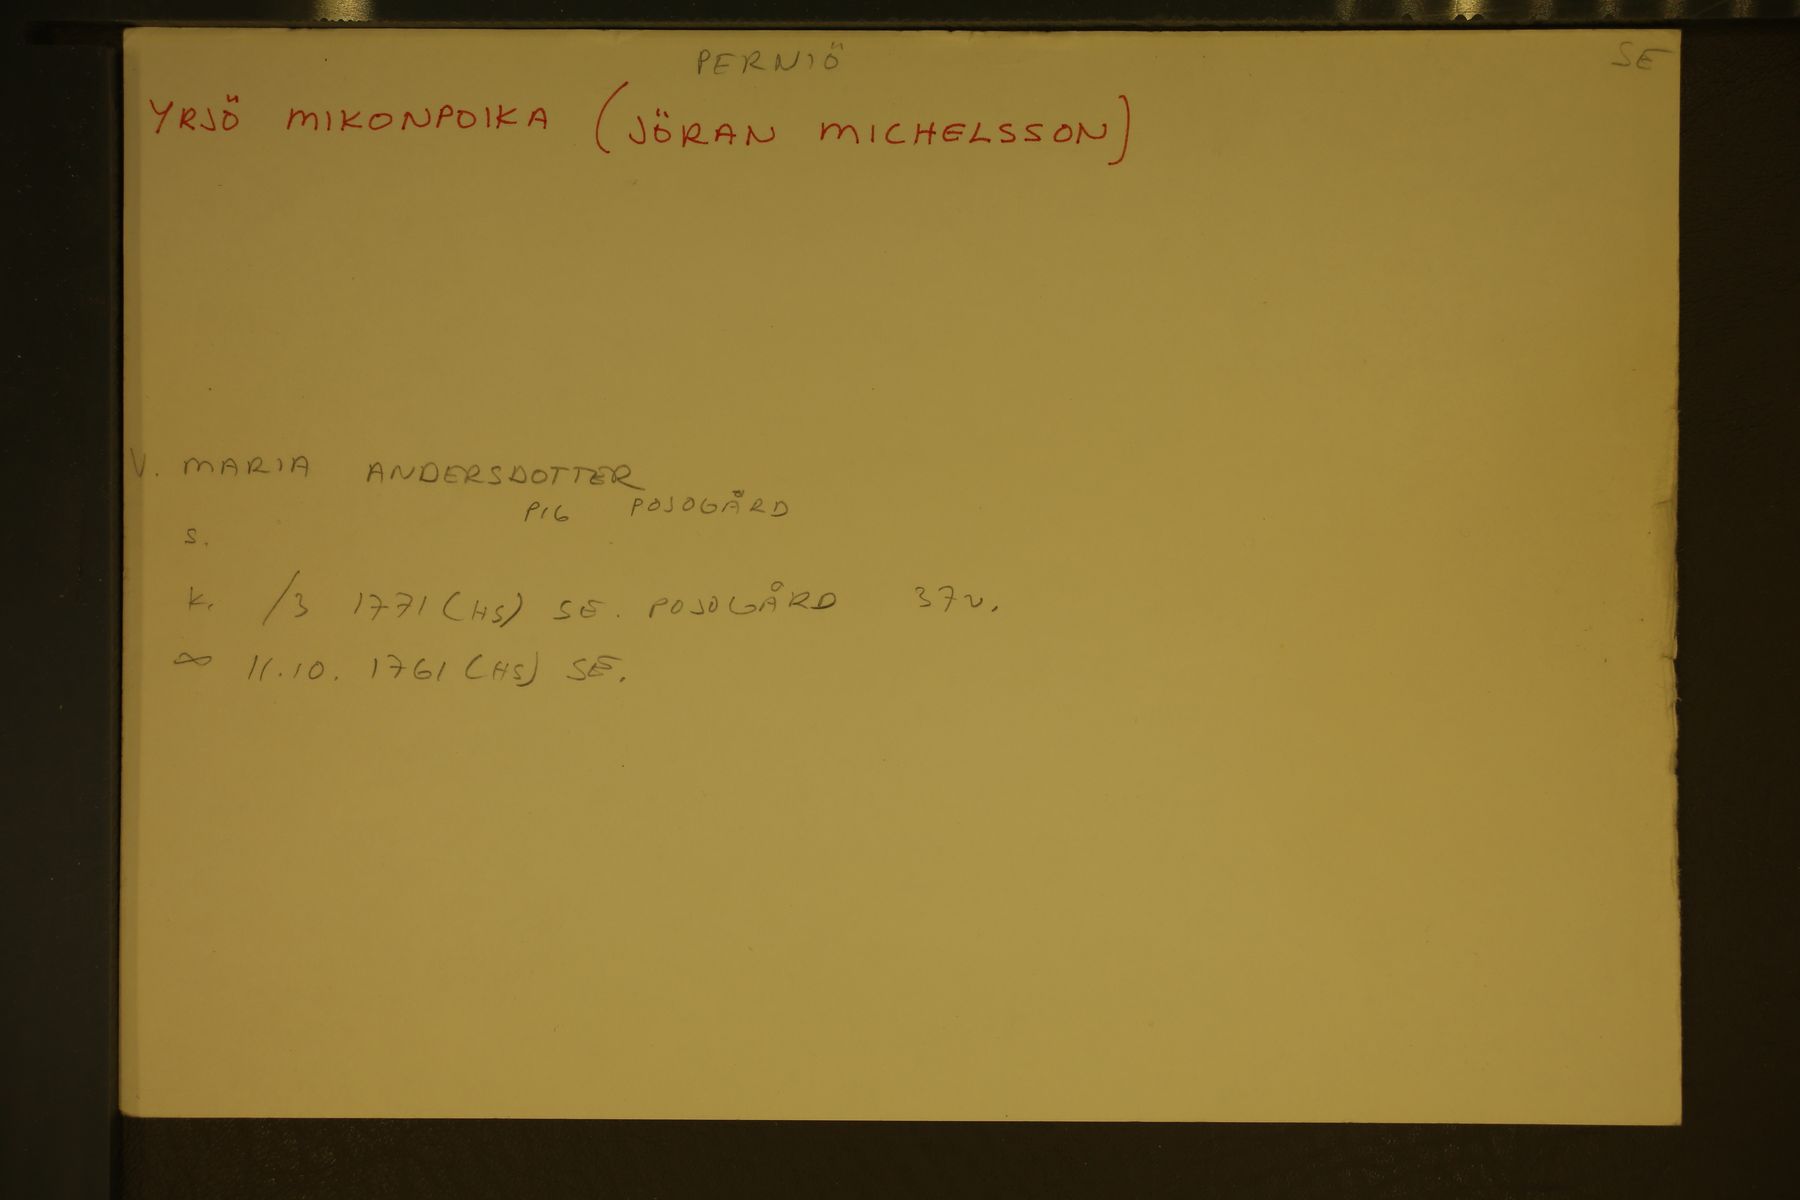 PERNIÖ SE
YRJÖ MIKONPOIKA (JÖRAN MICHELSSON)
V. MARIA ANDERSDOTTER
PIG POJOGÅRD
S.
K. /3 1771 (HS) SE. POJOGÅRD 37 v.
∞ 11.10. 1761 (HS) SE.